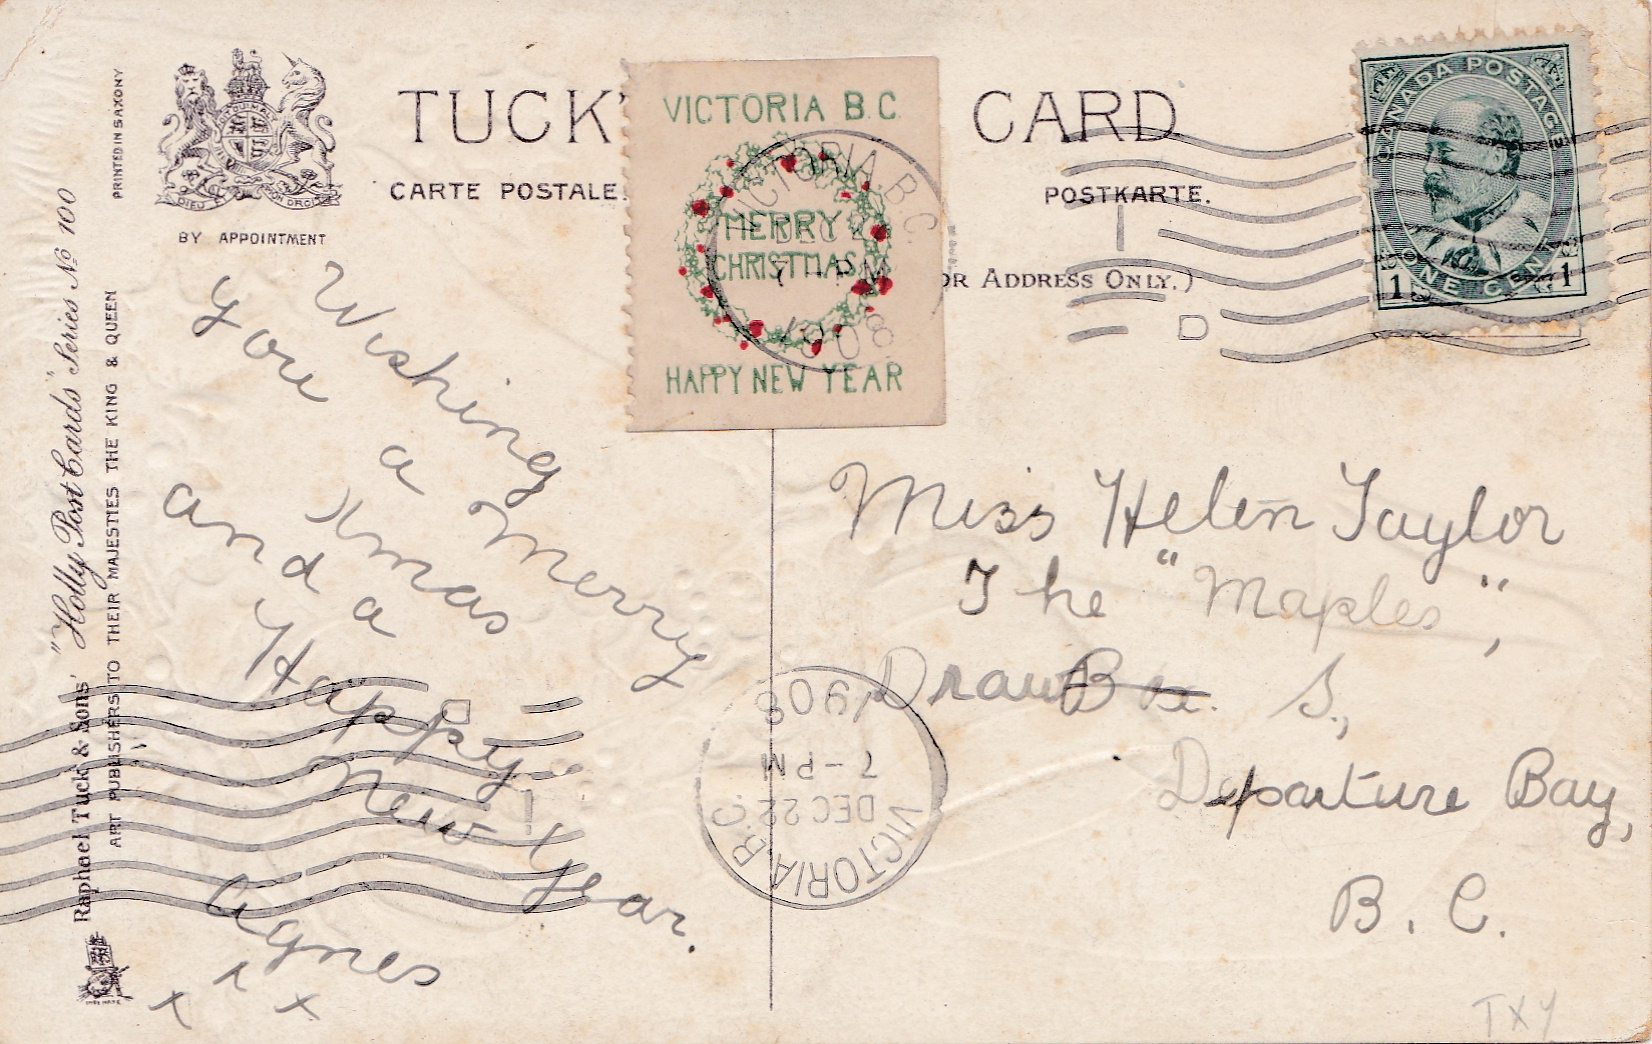 PRINTED IN SAXONY
DIEU ET MON DROIT
BY APPOINTMENT
TUCK'
CARD
CARTE POSTALE.
POSTKARTE.
OR ADDRESS ONLY.)
VICTORIA B.C.
MERRY
CHRISTMAS
HAPPY NEW YEAR
VICTORIA. B.C.
DEC 22
7-PM
1908
CANADA POSTAGE
ONE CENT
1 1
D
"Holly Post Cards" Series No 100
Raphael Tuck & Sons'
ART PUBLISHERS TO THEIR MAJESTIES THE KING & QUEEN
Wishing
you a Merry
Xmas
and a
Happy
New Year.
Agnes
x x x
Miss Helen Taylor
The "Maples",
Draw Box. S.,
Departure Bay,
B. C.
VICTORIA B.C.
DEC 22
7-PM
1908
TXY